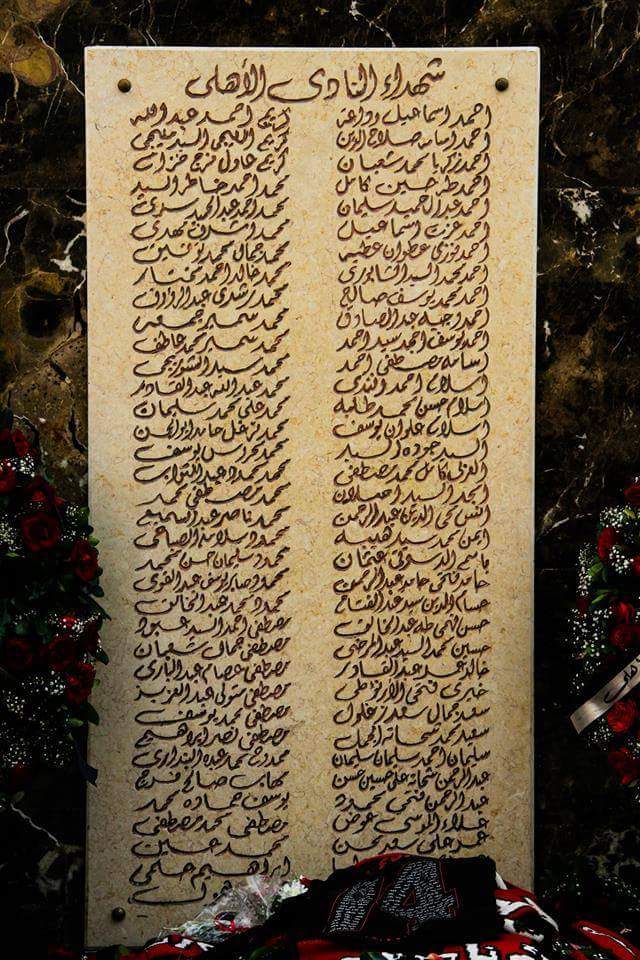 شهداء النادى الأهلى
احمد اسماعيل وداعة
احمد اسامه صلاح الدين
احمد زكريا محمد شعبان
احمد طه حسين كامل
احمد عبد الحميد سليمان
احمد عزت اسماعيل
احمد فوزى عطوان عطيه
احمد محمد السيد الشابورى
احمد محمد يوسف صالح
احمد وجيه عبد الصادق
احمد يوسف احمد سيد احمد
اسامه مصطفى احمد
اسلام احمد
اسلام حسن محمد طلبه
اسلام علوان يوسف
السيد جوده السيد
كامل محمد مصطفى
امجد السيد اصلان
انس محى الدين عبد الرحمن
ايمن محمد سيد
باسم الدسوقى عثمان
حامد فتحى حامد عبد الرحمن
حسام الدين سيد عبد الفتاح
حسن فهمى طه عبد الخالق
حسين محمد السيد عبد المرضى
خالد عمر عبد القادر
خيرى فتحى
سعد جمال سعد زغلول
سعد محمد شحاته الجمل
سليمان احمد سليمان سليمان
عبد الرحمن شحاته على حسين حسن
عبد الرحمن فتحى محمود
علاء المرسى عوض
عمر على سعد محسن
كريم احمد عبد الله
كريم السيد
كريم عادل فرج
محمد احمد خاطر السيد
محمد احمد عبد الحميد سرى
محمد اشرف مهدى
محمد جمال محمد توفيق
محمد خالد احمد مختار
محمد رشدى عبد الرؤوف
محمد سمير جمعه
محمد سمير محمد عاطف
محمد سيد الشوربجى
محمد عبد الله عبد القادر
محمد على محمد سليمان
محمد حامد
محمد محروس يوسف
محمد محمود عبد التواب
محمد مصطفى محمد
محمد ناصر عبد السميع
محمود سلامه الصافى
محمود سليمان حسن محمد
محمود عصام يوسف عبد القوى
محمود محمد عبد الخالق
مصطفى احمد السيد عبود
مصطفى جمال شعبان
مصطفى عصام عبد البارى
مصطفى متولى عبد العزيز
مصطفى محمد يوسف
مصطفى نصر ابراهيم
محمود محمد عبده البندارى
مهاب صالح فرج
يوسف حماده محمد
مصطفى محمد مصطفى
محمد حسين
ابراهيم حلمى
74